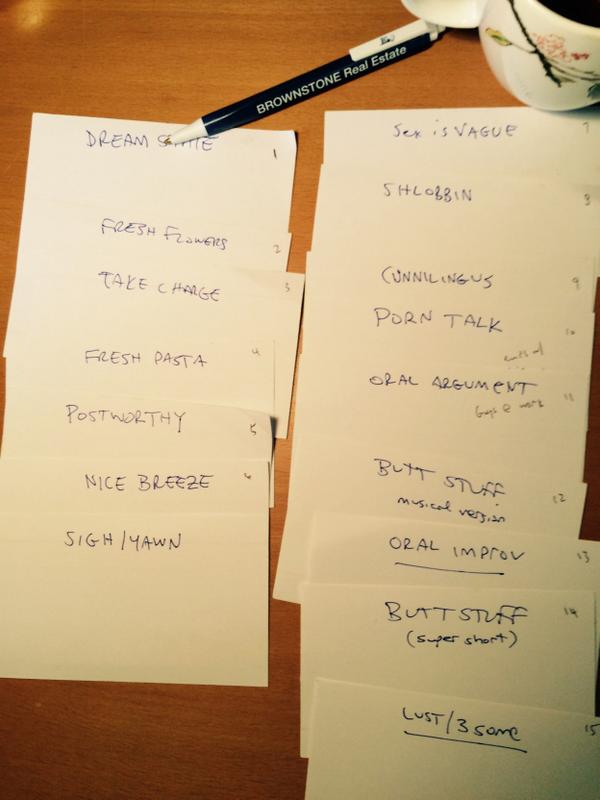 BROWNSTONE Real Estate
DREAM STATE 1
FRESH FLOWERS 2
TAKE CHARGE 3
FRESH PASTA 4
POSTWORTHY 5
NICE BREEZE 6
SIGH/YAWN
Sex is VAGUE 7
SHLOBBIN 8
CUNNILINGUS 9
PORN TALK 10
ORAL ARGUMENT 11
Guys @ work
BUTT STUFF 12
musical version
ORAL IMPROV 13
BUTT STUFF 14
(super short)
LUST/3some 15